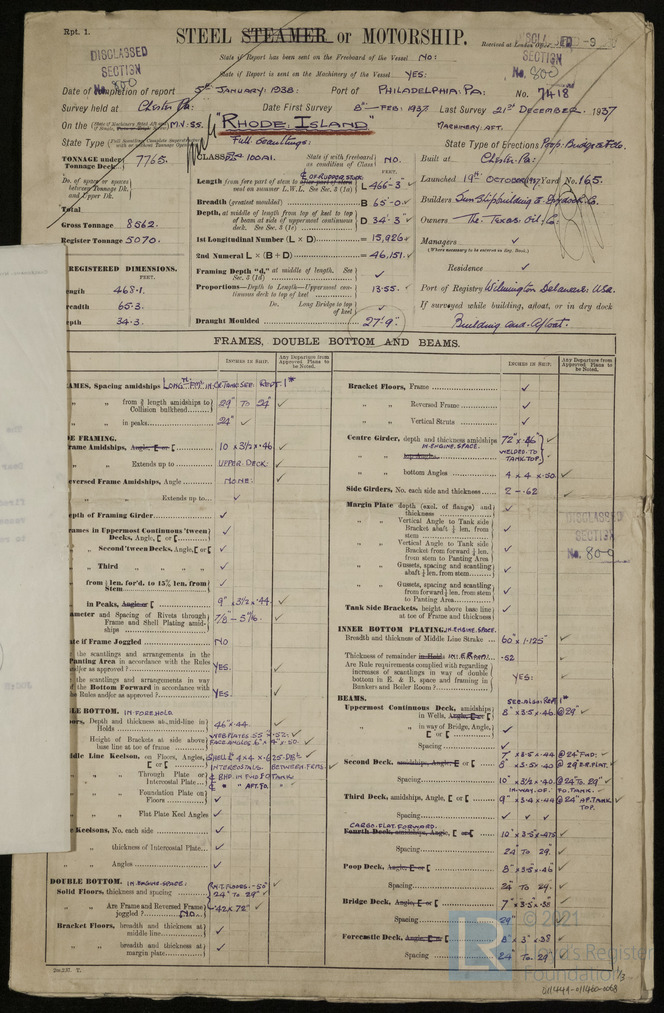 Rpt. 1.
STEEL STEAMER or MOTORSHIP.
DISCLASSED SECTION No. 800
State if Report has been sent on the Freeboard of the Vessel NO:
State if Report is sent on the Machinery of the Vessel YES:
Date of completion of report 5th JANUARY 1938: Port of PHILADELPHIA: PA: No. 7418
Survey held at Chester Pa: Date First Survey 8th FEB: 1937 Last Survey 21st DECEMBER 1937
On the M.V. SS. "RHODE ISLAND" MACHINERY: AFT.
State Type Full Scantlings: State Type of Erections Poop: Bridge & Fcle.
TONNAGE under Tonnage Deck 7765.
Do. of space or spaces between Tonnage Dk. and Upper Dk.
Total
Gross Tonnage 8562.
Register Tonnage 5070.
REGISTERED DIMENSIONS.
FEET.
ength 468.1.
readth 65.3.
epth 34.3.
CLASS 100A1. State if with freeboard as condition of Class NO.
Length from fore part of stem to ¢ OF RUDDER STOCK after part of stern post on summer L.W.L. See Sec. 3 (1a) L 466-3
Breadth (greatest moulded) B 65-0
Depth, at middle of length from top of keel to top of beam at side of uppermost continuous deck. See Sec. 3 (1c) D 34-3
1st Longitudinal Number (L × D) = 15,926
2nd Numeral L × (B + D) = 46,151.
Framing Depth "d," at middle of length. See Sec. 3 (1d)
Proportions—Depth to Length—Uppermost continuous deck to top of keel 13.55.
Do. Long Bridge to top of keel
Draught Moulded 27'-9"
Built at Chester: Pa:
Launched 19th OCTOBER 1937 Yard No. 165.
Builders Sun Shipbuilding & Drydock Co.
Owners The Texas Oil Co:
Managers
(Where necessary to be entered in Reg. Book.)
Residence
Port of Registry Wilmington Delaware: USA.
If surveyed while building, afloat, or in dry dock
Building and Afloat.
FRAMES, DOUBLE BOTTOM AND BEAMS.
INCHES IN SHIP. Any Departure from Approved Plans to be Noted.
INCHES IN SHIP. Any Departure from Approved Plans to be Noted.
AMES, Spacing amidships
from ⅗ length amidships to Collision bulkhead 29" TO 24"
in peaks 24"
E FRAMING.
rame Amidships, Angle, [ or [ 10 × 3½ × .46
Extends up to UPPER DECK
eversed Frame Amidships, Angle NONE:
Extends up to
epth of Framing Girder
rames in Uppermost Continuous 'tween Decks, Angle, [ or [
Second 'tween Decks, Angle, [ or [
Third
from ⅕ len. for'd. to 15% len. from Stem
in Peaks, Angle or [ 9" × 3½ × .44
iameter and Spacing of Rivets through Frame and Shell Plating amidships
ate if Frame Joggled NO
the scantlings and arrangements in the Panting Area in accordance with the Rules and/or as approved? YES.
the scantlings and arrangements in way of the Bottom Forward in accordance with the Rules and/or as approved? YES.
LE BOTTOM. IN FOREHOLD
oors, Depth and thickness at mid-line in Holds 46" × .44
Height of Brackets at side above base line at toe of frame
ddle Line Keelson, on Floors, Angles, [ or [
Through Plate or Intercostal Plate
Foundation Plate on Floors
Flat Plate Keel Angles
e Keelsons, No. each side
thickness of Intercostal Plate
Angles
DOUBLE BOTTOM. IN ENGINE SPACE:
Solid Floors, thickness and spacing 24" TO 29"
Are Frame and Reversed Frame joggled? NO. 42 × 72"
Bracket Floors, breadth and thickness at middle line
breadth and thickness at margin plate
Bracket Floors, Frame
Reversed Frame
Vertical Struts
Centre Girder, depth and thickness amidships 72" × .46"
IN ENGINE SPACE.
top Angles WELDED TO TANK TOP.
bottom Angles 4 × 4 × .50
Side Girders, No. each side and thickness 2 - .62
Margin Plate depth (excl. of flange) and thickness
Vertical Angle to Tank side Bracket abaft ¼ len. from stem
Vertical Angle to Tank side Bracket from forward ¼ len. from stem to Panting Area
Gussets, spacing and scantling abaft ¼ len. from stem
Gussets, spacing and scantling from forward ¼ len. from stem to Panting Area
Tank Side Brackets, height above base line at toe of Frame and thickness
DISCLASSED SECTION No. 800
INNER BOTTOM PLATING. IN ENGINE SPACE.
Breadth and thickness of Middle Line Strake 60" × 1.125"
Thickness of remainder in Holds IN E. ROOM. .52
Are Rule requirements complied with regarding increases of scantlings in way of double bottom in E. & B. space and framing in Bunkers and Boiler Room? YES:
BEAMS. SEE ALSO REPT 1*
Uppermost Continuous Deck, amidships in Wells, Angle, [ or [ 8" × 3.5 × .46 @ 29"
in way of Bridge, Angle, [ or [
Spacing
Second Deck, amidships, Angle, [ or [
Spacing
Third Deck, amidships, Angle, [ or [
Spacing
CARGO FLAT FORWARD.
Fourth Deck, amidships, Angle, [ or [ 12" × 3.5 × .475
Spacing 24" TO 29"
Poop Deck, Angle, [ or [ 8" × 3.5 × .46"
Spacing 24" TO 29"
Bridge Deck, Angle, [ or [ 7" × 3.5 × .38"
Spacing 29"
Forecastle Deck, Angle, [ or [ 8" × 3" × .38
Spacing 24" TO 29"
© 2021
Lloyd's Register
Foundation